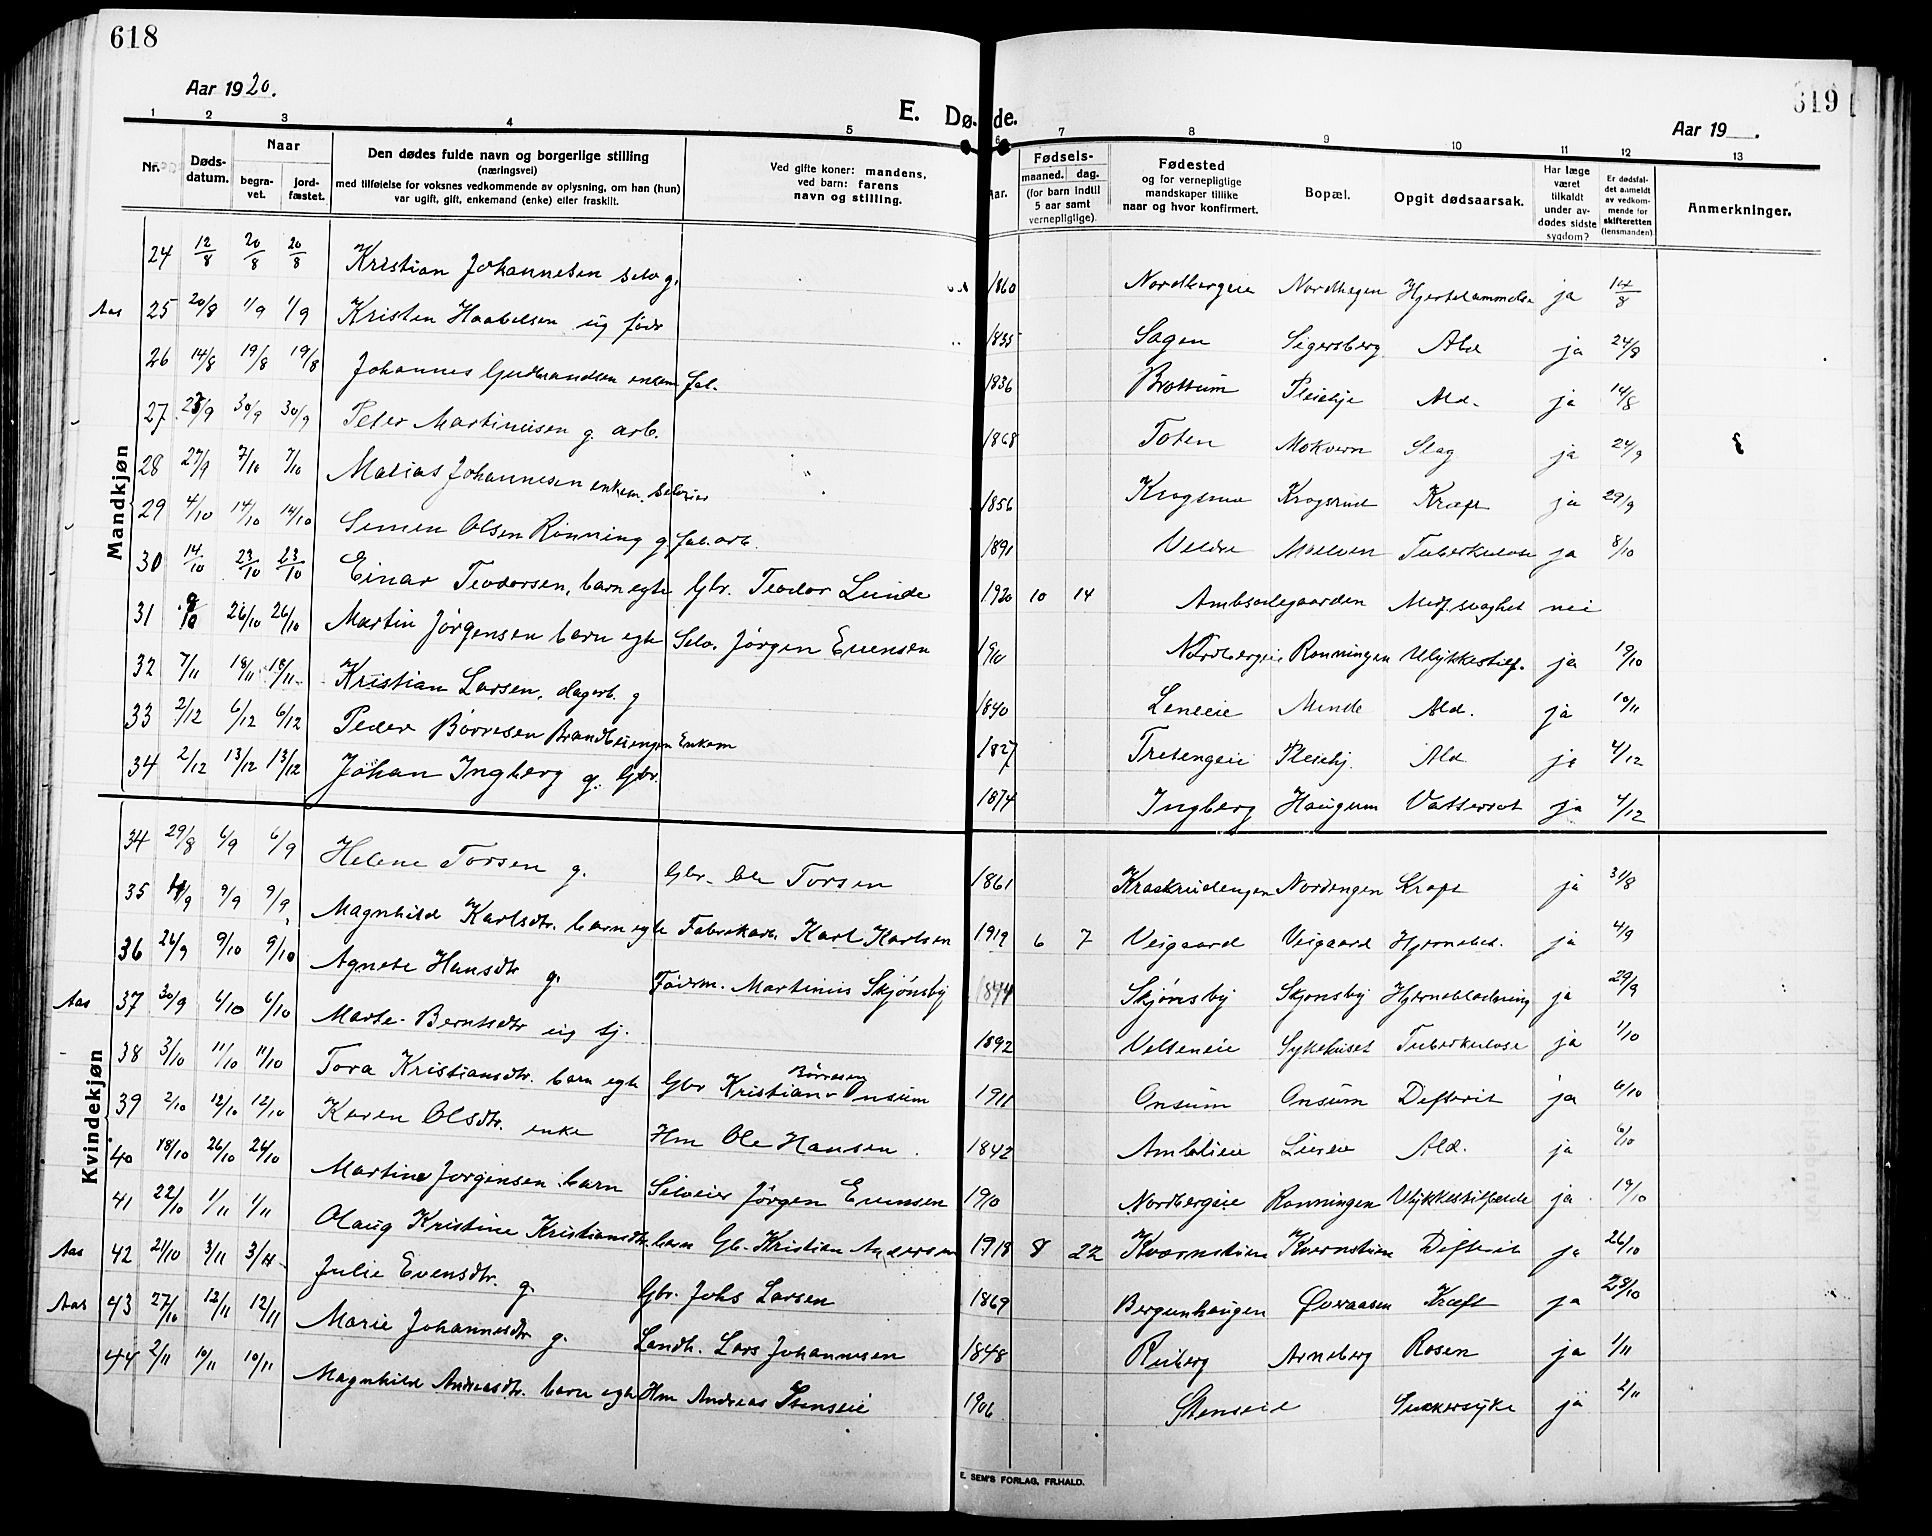 618
619
Aar 1920.
E. Døde.
Aar 19 .
1 2 3 4 5 6 7 8 9 10 11 12 13
Nr.
Døds-datum.
Naar
begra-vet.
jord-fæstet.
Den dødes fulde navn og borgerlige stilling
(næringsvei)
med tilføielse for voksnes vedkommende av oplysning, om han (hun)
var ugift, gift, enkemand (enke) eller fraskilt.
Ved gifte koner: mandens,
ved barn: farens
navn og stilling.
Aar.
Fødsels-
maaned. dag.
(for barn indtil
5 aar samt
vernepligtige).
Fødested
og for vernepligtige
mandskaper tillike
naar og hvor konfirmert.
Bopæl.
Opgit dødsaarsak.
Har læge
været
tilkaldt
under av-
dødes sidste
sygdom?
Er dødsfal-
det anmeldt
av vedkom-
mende for
skifteretten
(lensmanden)
Anmerkninger.
Mandkjøn
24 12/8 20/8 20/8 Kristian Johannesen selv g. 1860 Nordbergeie Nordhagen Hjertelammelse ja 14/8
Aas 25 20/8 1/9 1/9 Kristen Haabelsen ug fødr 1835 Sagen Sigersberg Ald ja 24/8
26 14/8 19/8 19/8 Johannes Gudbrandsen enkem fab. 1836 Brøttum Pleiehje Ald. ja 14/8
27 23/9 30/9 30/9 Peter Martinusen g. arb. 1868 Toten Mokvern Slag ja 24/9
28 27/9 7/10 7/10 Matias Johannesen enkem. selveier 1856 Krogsrud Kræft ja 29/9
29 4/10 14/10 14/10 Simen Olsen Rønning g. fab. arb. 1891 Veldre Moelven Tuberkulose ja 8/10
30 14/10 23/10 23/10 Einar Teodorsen, barn egte Gbr. Teodor Lunde 1920 10 14 Ambsodegaarden Medf. svaghet nei
31 9/10 26/10 26/10 Martin Jørgensen barn egte Selv. Jørgen Evensen 1910 Nordbergeie Rønningen Ulykkestilf. ja 19/10
32 7/11 18/11 18/11 Kristian Larsen, dagarb. g 1840 Leneeie Minde Ald. ja 10/11
33 2/12 6/12 6/12 Peder Børresen Brandbuengen Enkem 1827 Tretengeie Pleiehj. Ald ja 4/12
34 2/12 13/12 13/12 Johan Ingberg g. Gbr. 1874 Ingberg Haugum Vattersot ja 4/12
Kvindekjøn
34 29/8 6/9 6/9 Helene Torsen g. Gbr. Ole Torsen 1861 Kraskrudengen Nordengen Kræft ja 31/8
35 4/9 9/9 9/9 Magnhild Karlsdtr. barn egte Fabrikarb. Karl Karlsen 1919 6 7 Veigaard Veigaard Hjernebet. ja 4/9
36 26/9 9/10 9/10 Agnete Hansdtr g. Føderm. Martinius Skjønsby 1844 Skjønsby Skjønsby Hjerneblødning ja 29/9
Aas 37 30/9 6/10 6/10 Marte Berntsdtr ug tj. 1892 Velteneie Sykehuset Tuberkulose ja 1/10
38 3/10 11/10 11/10 Tora Kristiansdtr. barn egte Gbr Kristian Børresen Onsum 1911 Onsum Onsum Difterit ja 6/10
39 2/10 12/10 12/10 Karen Olsdtr. enke Hm Ole Hansen 1842 Amblieie Lieneie Ald. ja 6/10
40 18/10 26/10 26/10 Martine Jørgensen barn Selveier Jørgen Evensen 1910 Nordbergeie Rønningen Ulykkestilfælde ja 19/10
41 22/10 1/11 1/11 Olaug Kristine Kristiansdtr. barn Gb. Kristian Andersen 1918 8 22 Kværnstuen Kvernstuen Difterit ja 26/10
Aas 42 21/10 3/11 3/11 Julie Evensdtr. g. Gbr. Johs Larsen 1869 Bergunhaugen Øveraasen Kræft ja 28/10
Aas 43 27/10 12/11 12/11 Marie Johannesdtr g. Landh. Lars Johannesen 1848 Reiberg Arneberg Rosen ja 1/11
44 2/11 10/11 10/11 Magnhild Andreasdtr. barn egte Hm Andreas Stenseie 1906 Stenseie Sukkersyke ja 2/11
E. SEM'S FORLAG, FR.HALD.